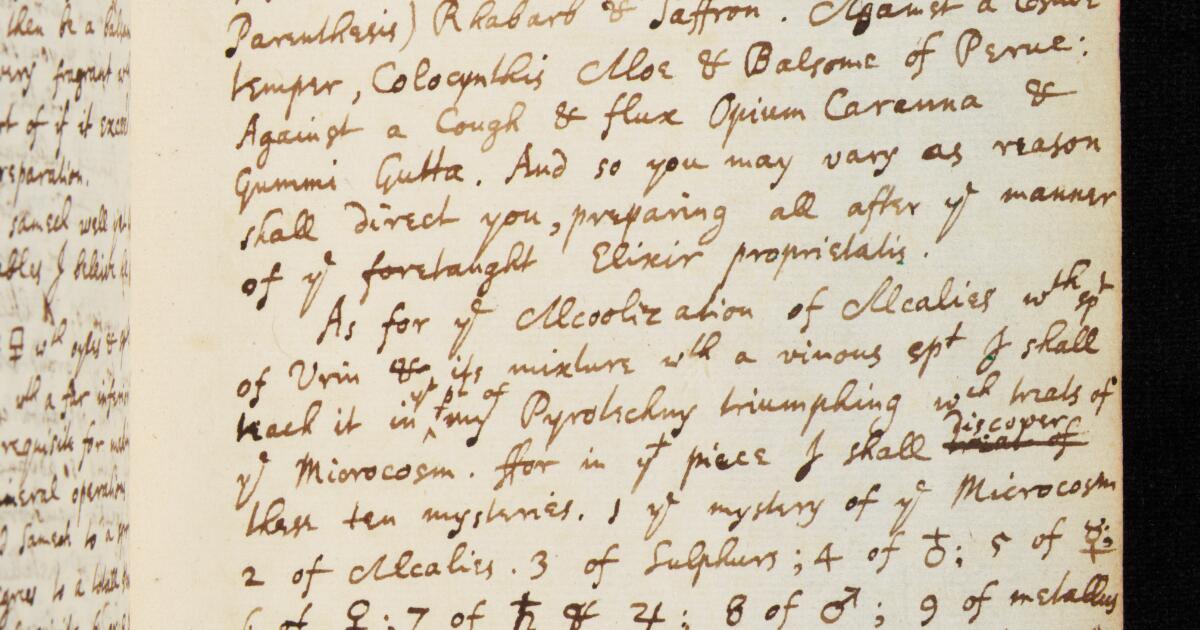 then be a
very fragrant
rt of it if it
reparation.
samech well
I beleive
♀ wth oyles &
wth a far
requisite for
mineral operations
samech to a
Parenthesis) Rhabarb & Saffron. Against a
temper, Colocynthis Aloe & Balsome of Perue:
Against a Cough & flux Opium Caranna &
Gummi Gutta. And so you may vary as reason
shall direct you, preparing all after ye manner
of ye foretaught Elixir proprietatis.
As for ye Alcoolization of Alcalies wth spt
of Urin & its mixture wth a vinous spt I shall
teach it in yt pt of my Pyrotechny triumphing wch treats of
ye Microcosm. ffor in yt piece I shall treat of discover
these ten mysteries. 1 ye mystery of ye Microcosm
2 of Alcalies. 3 of Sulphurs; 4 of ♁; 5 of ☿;
♀; 7 of ♄ & ♃; 8 of ♂; 9 of metallus